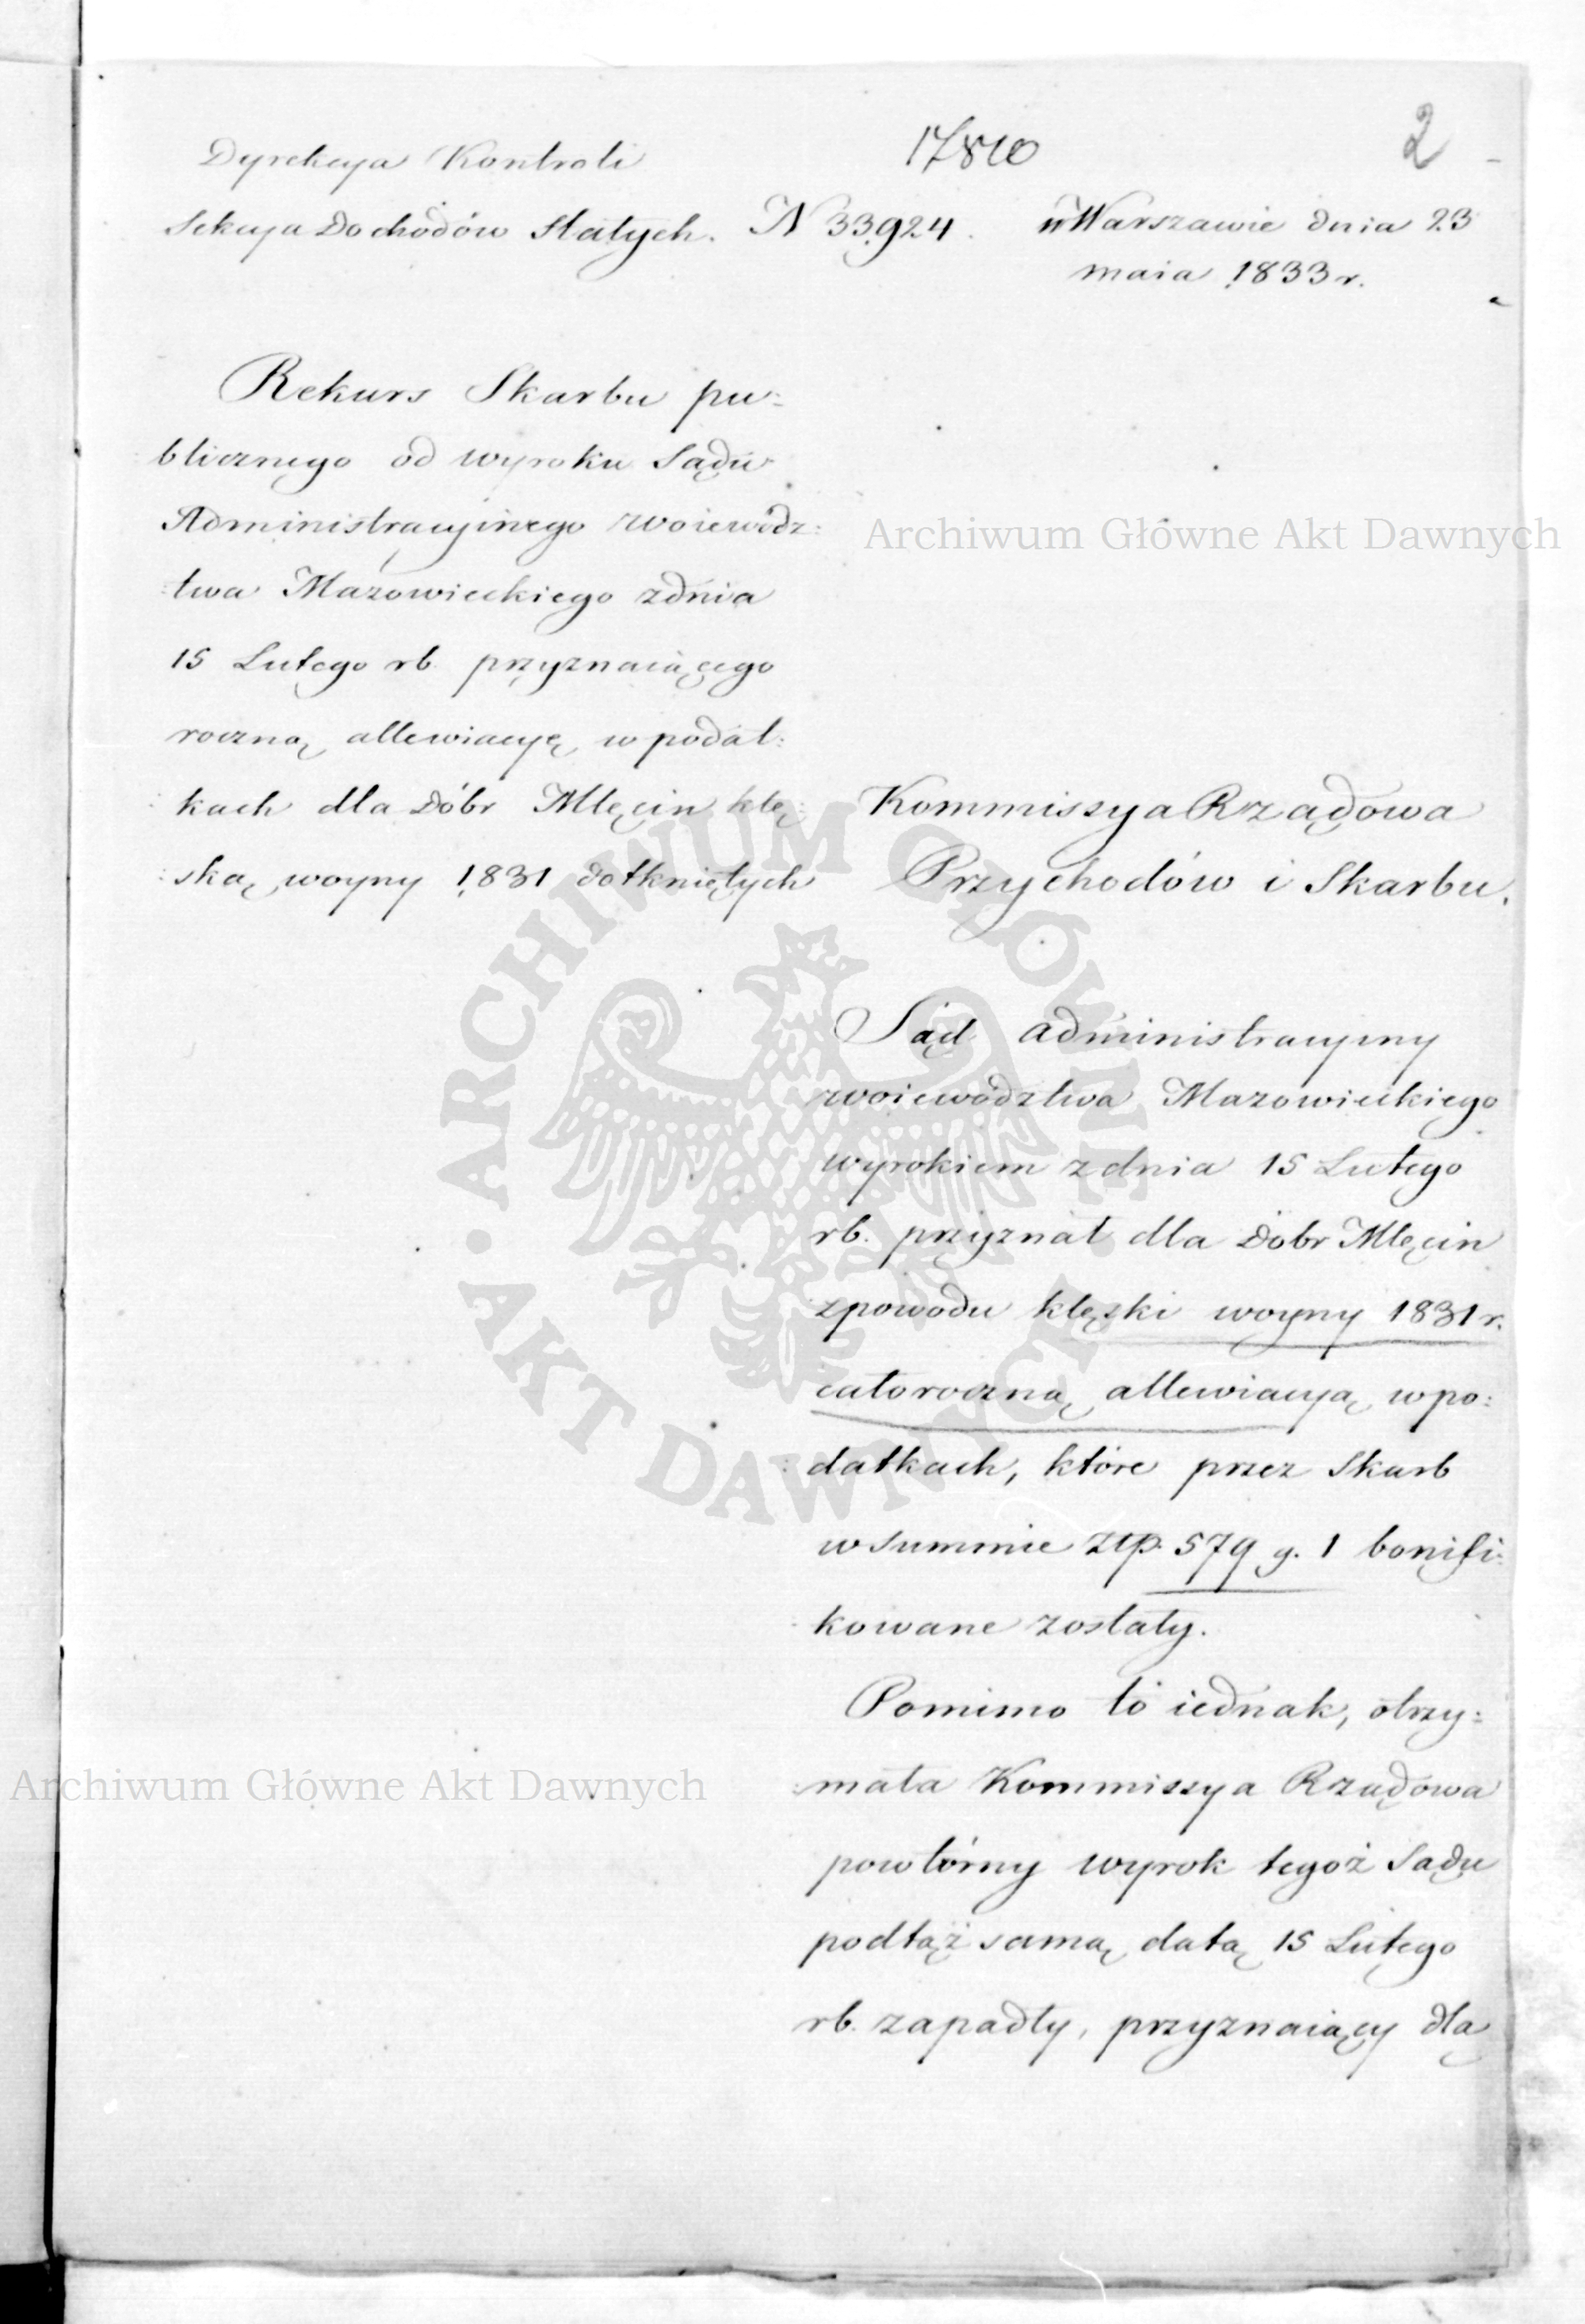 17810
2
Dyrekcya Kontroli
Sekcya Dochodów Stałych. N 33924. w Warszawie dnia 23
maia 1833 r.
Rekurs Skarbu pu-
blicznego od wyroku Sądu
Administracyinego woiewódz-
twa Mazowieckiego zdnia
15 Lutego rb. przyznaiącego
roczną allewiacyę w podat-
kach dla Dóbr Mlęcin klę-
ską woyny 1831 dotkniętych
Kommissya Rządowa
Przychodów i Skarbu.
Sąd administracyiny
woiewództwa Mazowieckiego
wyrokiem z dnia 15 Lutego
rb. przyznał dla Dóbr Mlęcin
zpowodu klęski woyny 1831 r.
całoroczną allewiacyą w po-
datkach, które przez Skarb
w summie Złp. 579 g. 1 bonifi-
kowane zostały.
Pomimo to iednak, otrzy-
mała Kommissya Rządowa
powtórny wyrok tegoż Sądu
podtąż samą datą 15 Lutego
rb. zapadły, przyznaiący dla
Archiwum Główne Akt Dawnych
Archiwum Główne Akt Dawnych
ARCHIWUM GŁÓWNE • AKT DAWNYCH •